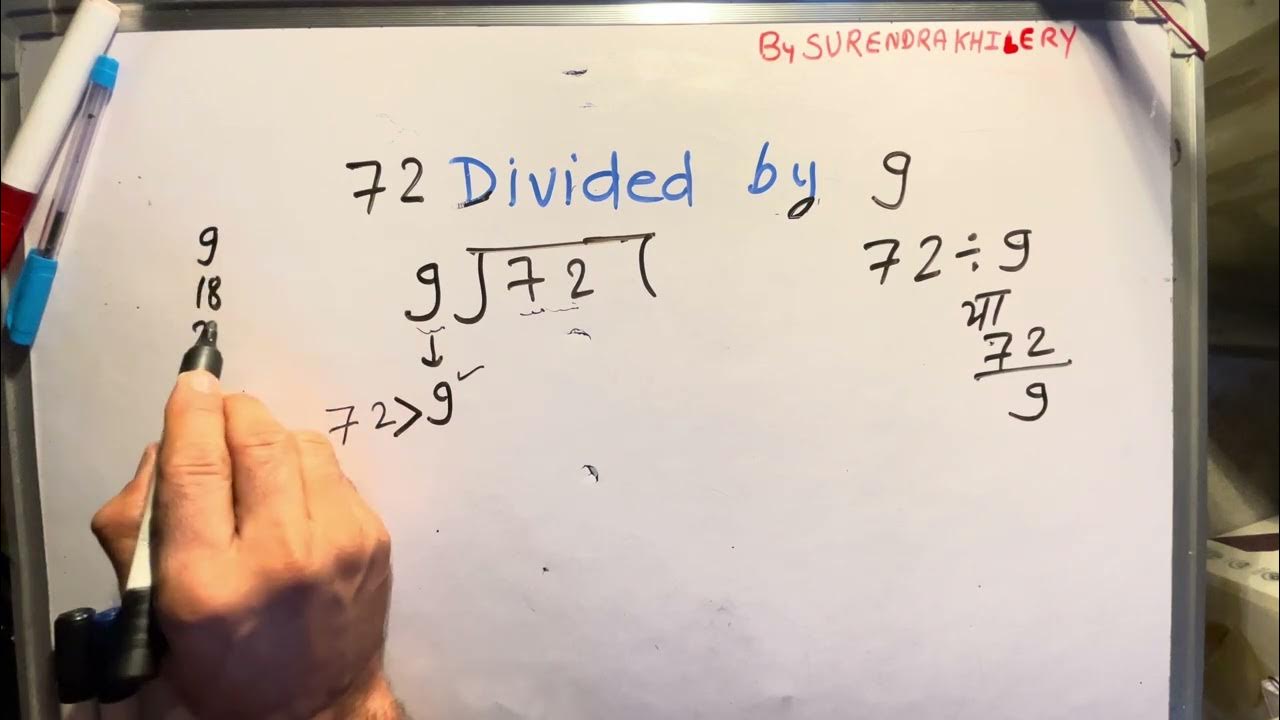 By SURENDRA KHILERY
72 Divided by 9
9
18
2
9 72
72 ÷ 9
या
72
9
72 > 9 ✓